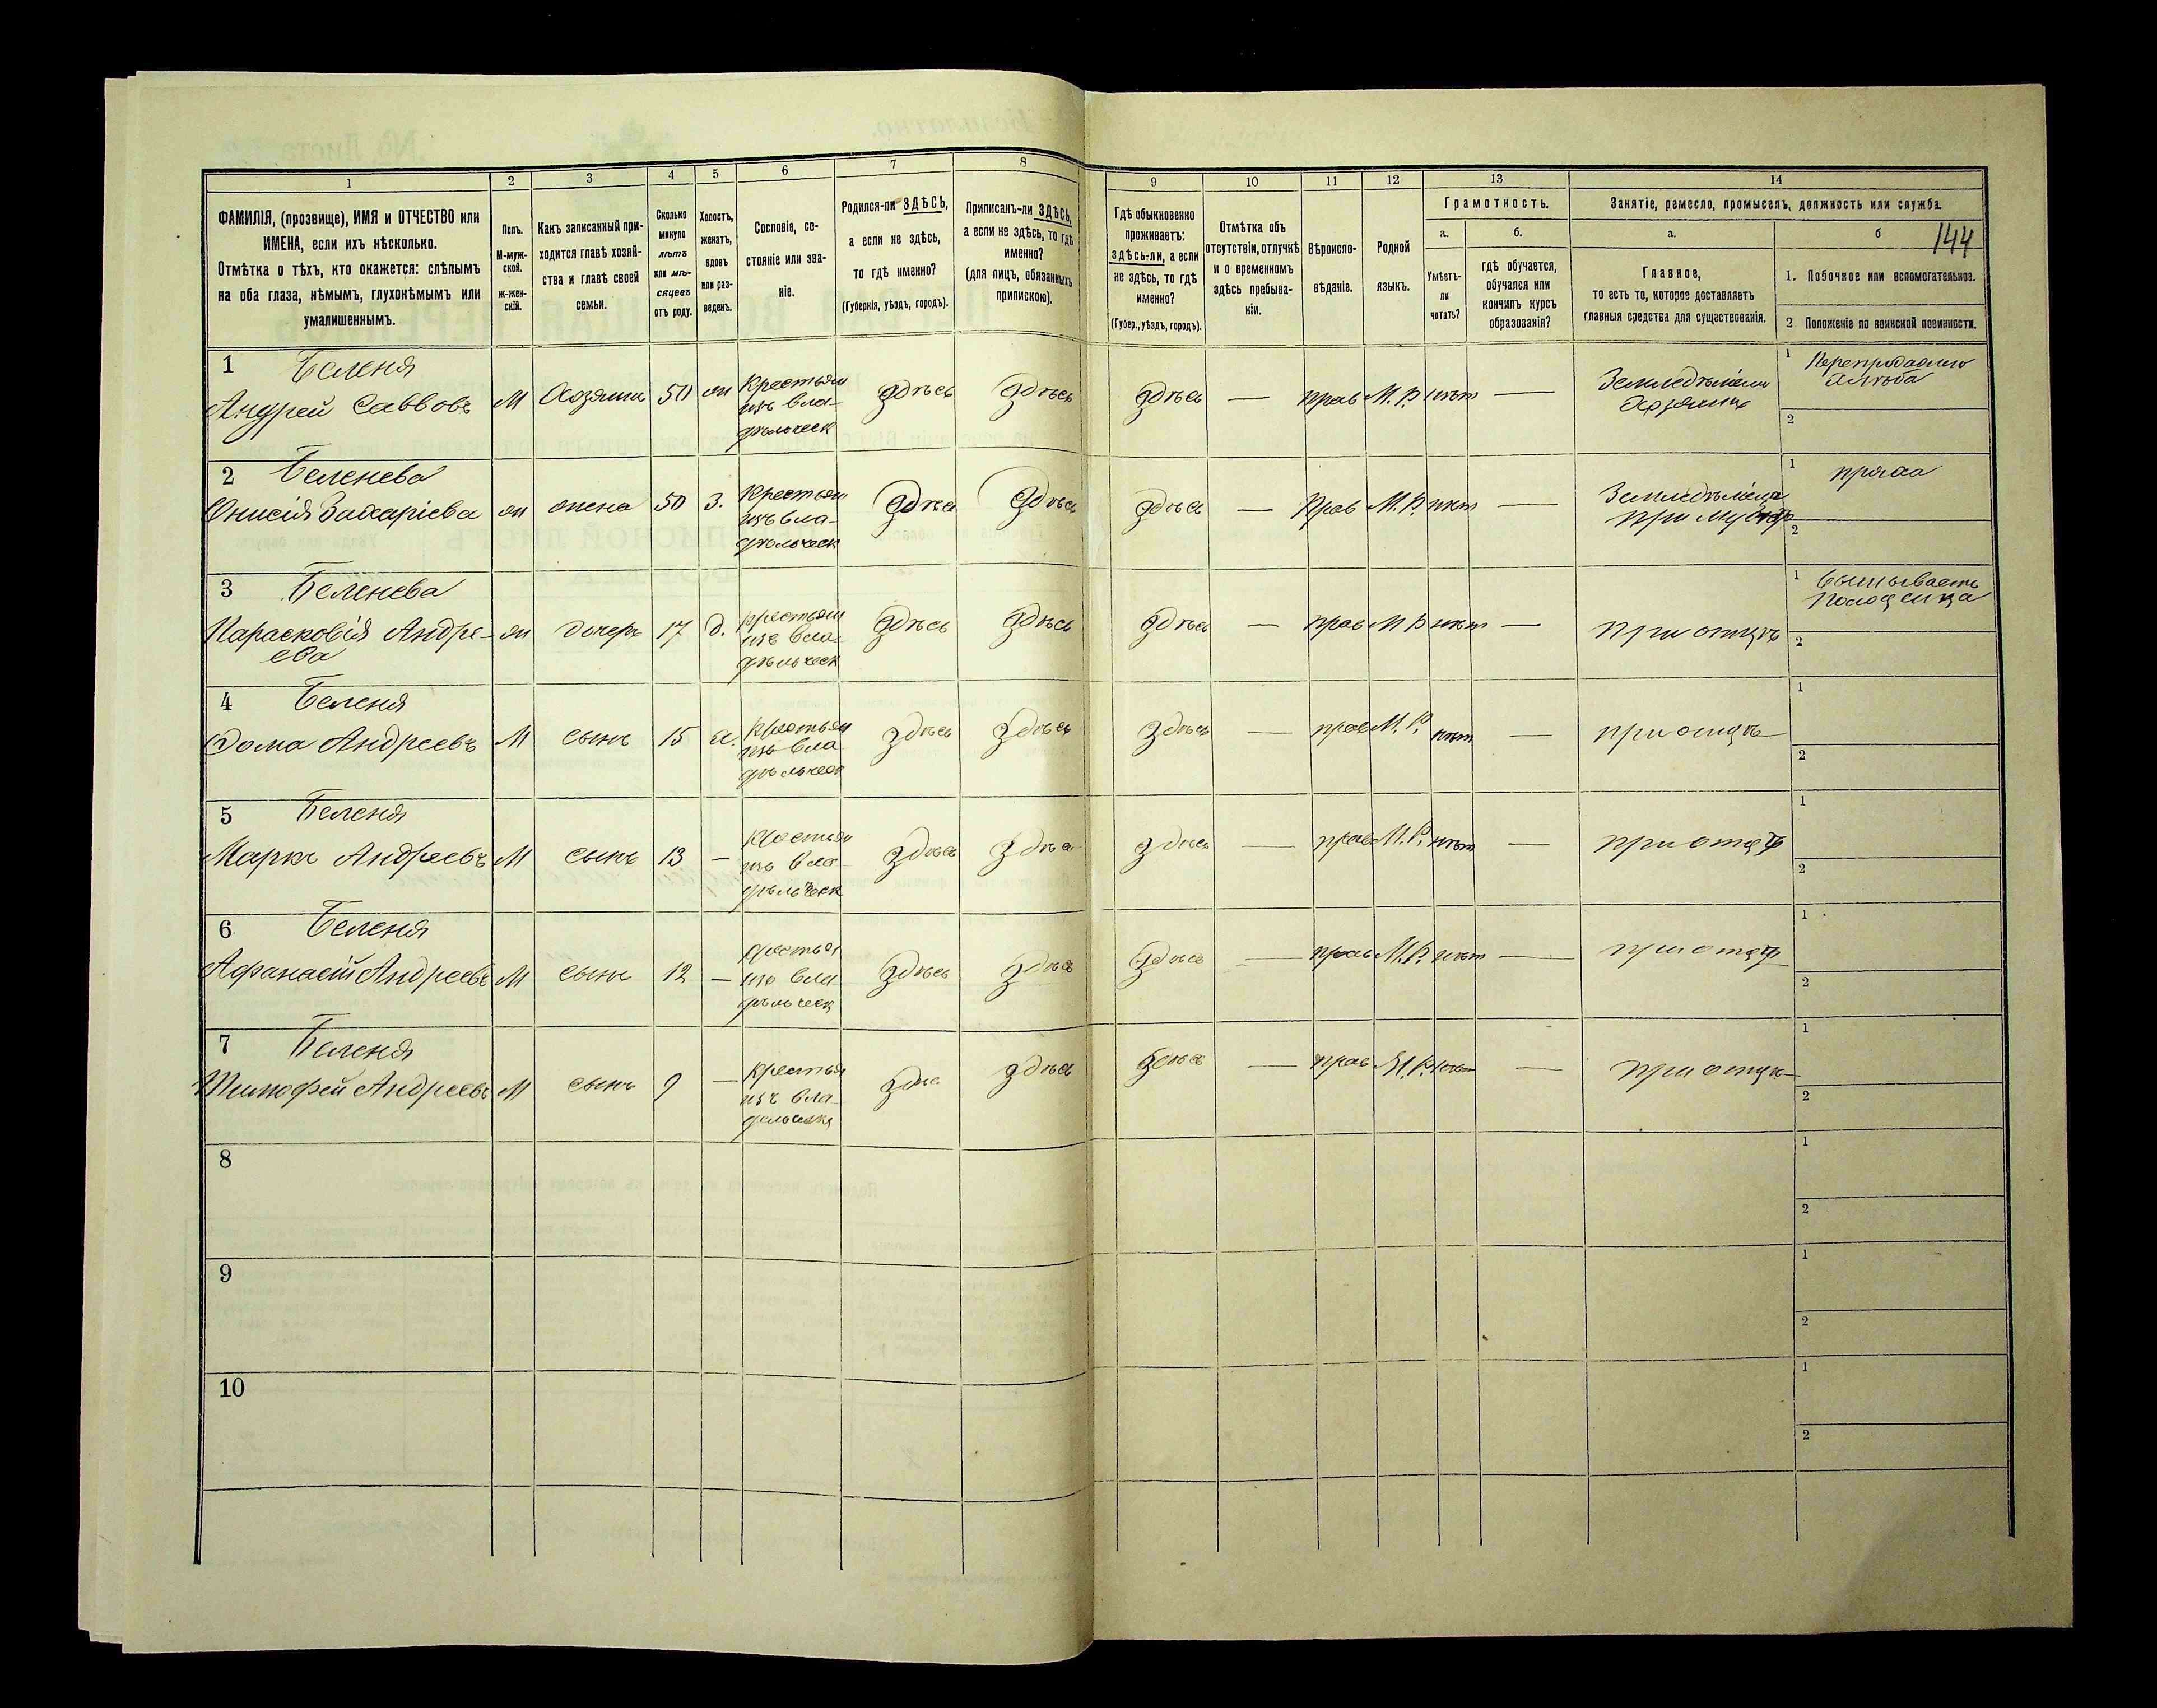 1
2
3
4
5
6
7
8
9
10
11
12
13
14
ФАМИЛІЯ, (прозвище), ИМЯ и ОТЧЕСТВО или
ИМЕНА, если ихъ нѣсколько.
Отмѣтка о тѣхъ, кто окажется: слѣпымъ
на оба глаза, нѣмымъ, глухонѣмымъ или
умалишеннымъ.
Полъ.
М-муж-
ской.
Ж-жен-
скій.
Какъ записанный при-
ходится главѣ хозяй-
ства и главѣ своей
семьи.
Сколько
минуло
лѣтъ
или мѣ-
сяцевъ
отъ роду.
Холостъ,
женатъ,
вдовъ
или раз-
веденъ.
Сословіе, со-
стояніе или зва-
ніе.
Родился-ли ЗДѢСЬ,
а если не здѣсь,
то гдѣ именно?
(Губернія, уѣздъ, городъ).
Приписанъ-ли ЗДѢСЬ,
а если не здѣсь, то гдѣ
именно?
(для лицъ, обязанныхъ
припискою).
Гдѣ обыкновенно
проживаетъ:
здѣсь-ли, а если
не здѣсь, то гдѣ
именно?
(Губер., уѣздъ, городъ).
Отмѣтка объ
отсутствіи, отлучкѣ
и о временномъ
здѣсь пребыва-
ніи.
Вѣроиспо-
вѣданіе.
Родной
языкъ.
Грамотность.
а.
Умѣетъ-
ли
читать?
б.
гдѣ обучается,
обучался или
кончилъ курсъ
образованія?
Занятіе, ремесло, промыселъ, должность или служба.
а.
Главное,
то есть то, которое доставляетъ
главныя средства для существованія.
б
144
1. Побочное или вспомогательное.
2 Положеніе по воинской повинности.
1 Беленя
Андрей Саввовъ
М Хозяинъ 50 Крестьян
изъ вла-
дѣльческ
здѣсь здѣсь здѣсь — прав М. Р. нѣтъ —
1
2
2 Беленева
Онисія Захаріева
ж жена 50 З. Крестьян
изъ вла-
дѣльческ
здѣсь здѣсь здѣсь — Прав М. Р. нѣт —
1 пряха
2
3 Беленева
Парасковія Андре-
ева
ж дочерь 17 д. крестьян
изъ вла-
дѣльческ
здѣсь здѣсь здѣсь — прав М Р нѣт — при отцѣ
1
2
4 Беленя
Фома Андреевъ
М сынъ 15 х. Крестьян
изъ вла
дѣльческ
здѣсь здѣсь здѣсь — прав М. Р. нѣт — при отцѣ
1
2
5 Беленя
Маркъ Андреевъ
М сынъ 13 — Крестьян
изъ вла-
дѣльческ
здѣсь здѣсь здѣсь — прав М. Р. нѣт — при отцѣ
1
2
6 Беленя
Афанасій Андреевъ
М сынъ 12 — крестья
изъ вла
дѣльческ
здѣсь здѣсь здѣсь — прав М. Р. нѣт — при отцѣ
1
2
7 Беленя
Тимофей Андреевъ
М сынъ 9 — крестья
изъ вла-
здѣсь здѣсь здѣсь — прав М. Р. нѣт — при отцѣ
1
2
8
1
2
9
1
2
10
1
2